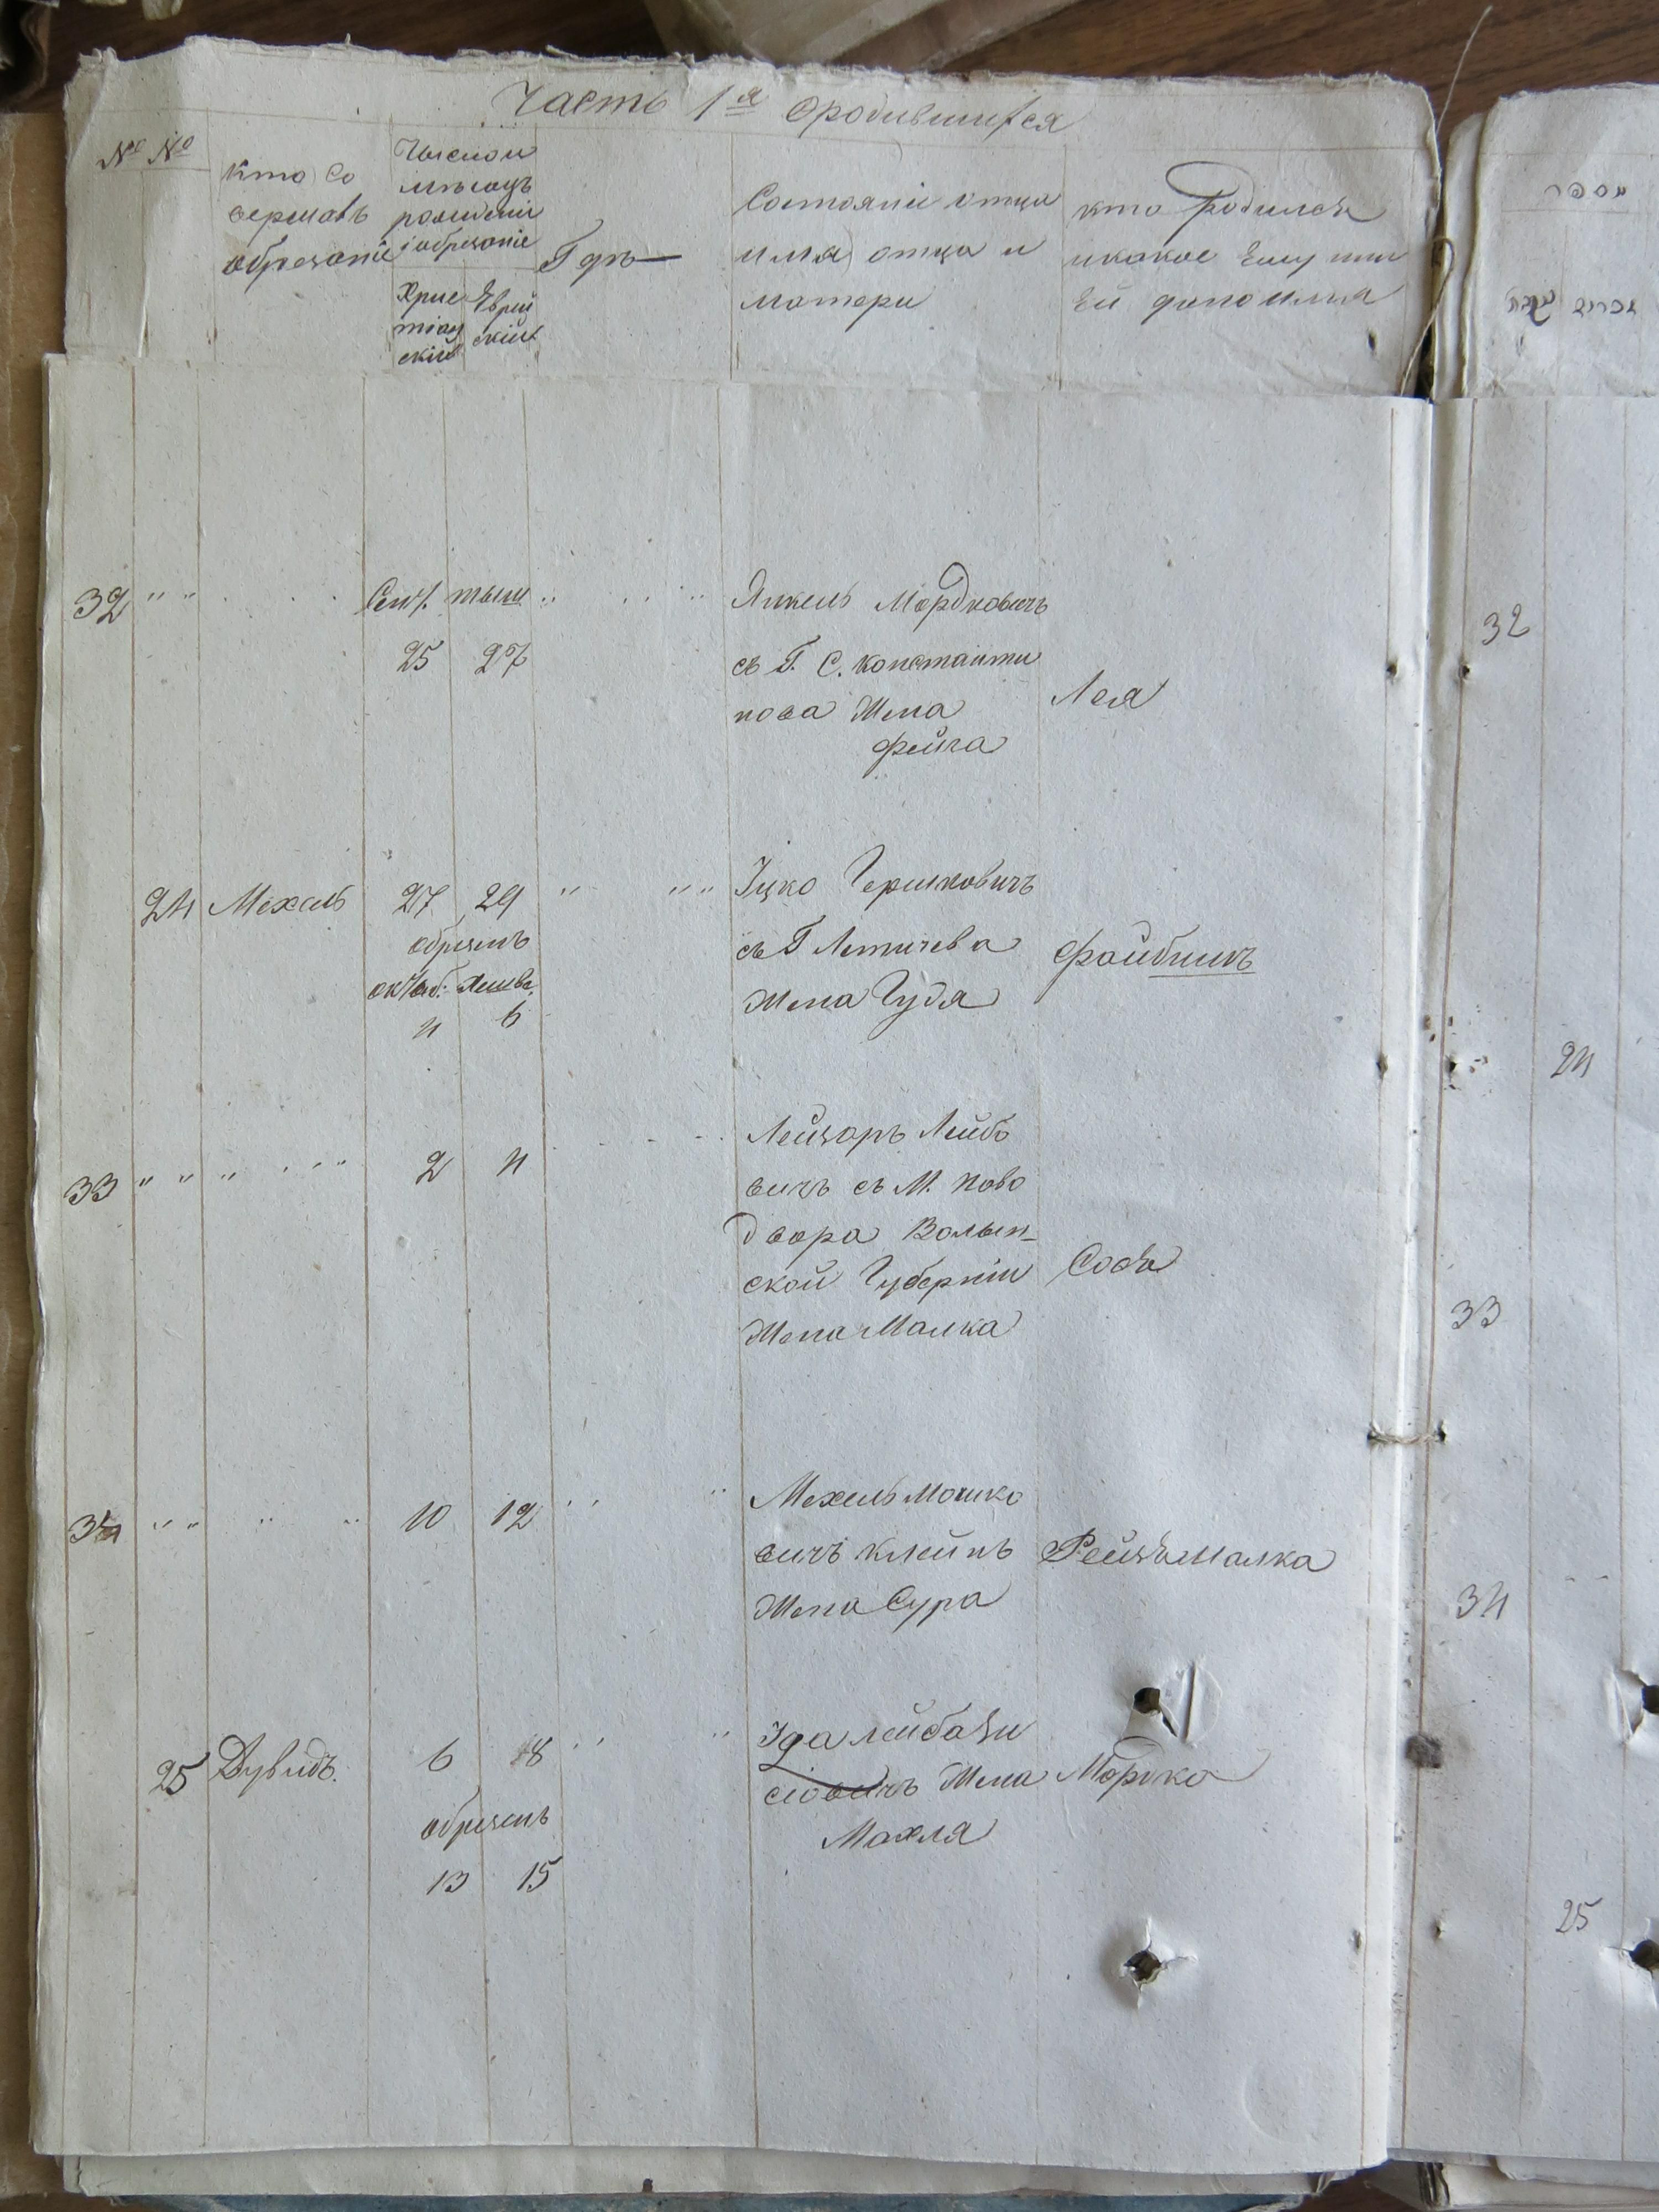 Часть 1я О родившихся
№ №
кто со
вершалъ
обрезаніе
Число и
мѣсяцъ
рожденія
і обрезаніе
Хрис
тіан
скій
Еврей
скій
Гдѣ
Состояніе отца
имя отца и
матери
кто родился
и какое Ему или
Ей дано имя
32
Сен. тыш
25 27
Янкель Мордковичъ
съ Г. С. Константи
нова Жена
Фейга
Лея
32
24 Мехель 27 29
обрезанъ
октяб. Хешва.
4 6
Іцко Гершковичъ
съ Г Летичева
Жена Гудя
Файбишъ
24
33
2 4
Лейзоръ Лейбо
вичъ съ М. Ново
двора Волын-
ской Губерніи
Жена Малка
Сося
33
34
10 12
Мехель Мошко
вичъ Клейнъ
Жена Сура
Рейзя Малка
34
25 Дувидъ 6 8
обрезанъ
13 15
сіовичъ Жена
Махля
Мордко
25